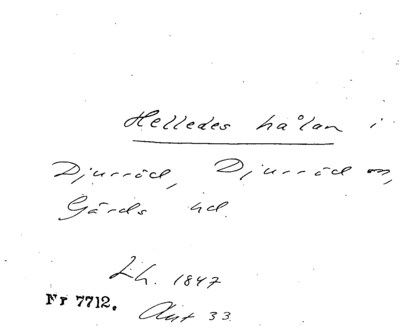 Helledes hålan i
Djurröd, Djurröd sn,
Gärds hd.
Lh. 1847
Nr 7712.
Akt 33